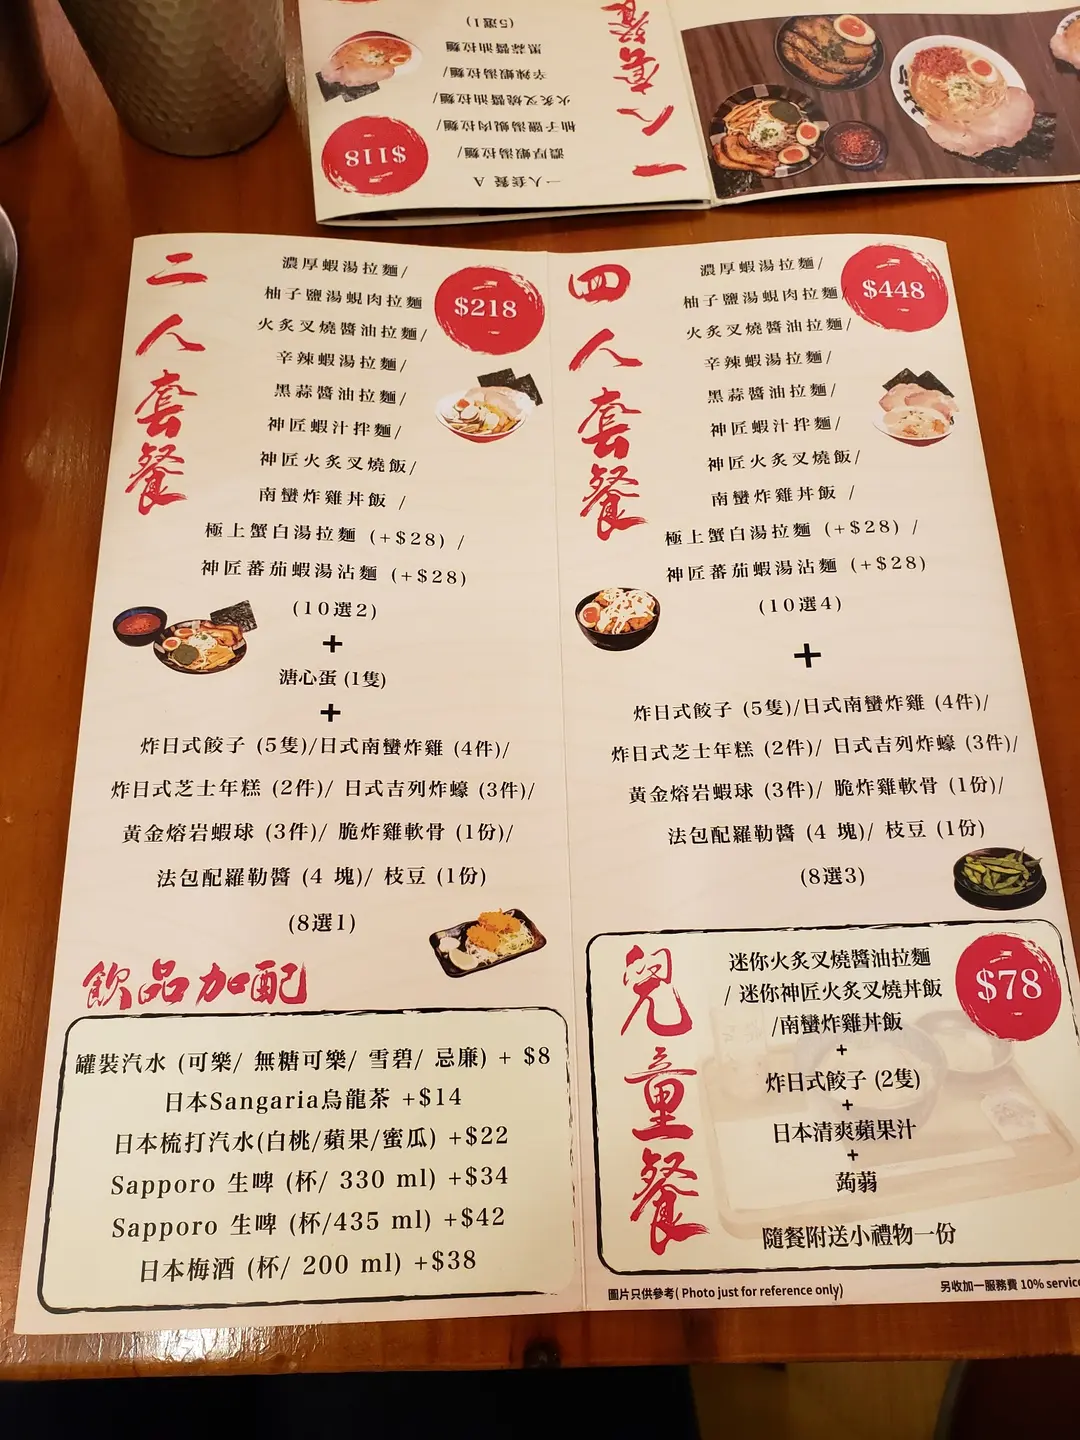 一人套餐
$118
一人套餐 A
濃厚蝦湯拉麵/
柚子鹽湯蜆肉拉麵/
火炙叉燒醬油拉麵/
辛辣蝦湯拉麵/
黑蒜醬油拉麵
(5選1)
二人套餐
$218
濃厚蝦湯拉麵/
柚子鹽湯蜆肉拉麵
火炙叉燒醬油拉麵/
辛辣蝦湯拉麵/
黑蒜醬油拉麵/
神匠蝦汁拌麵/
神匠火炙叉燒飯/
南蠻炸雞丼飯 /
極上蟹白湯拉麵 (+$28) /
神匠蕃茄蝦湯沾麵 (+$28)
(10選2)
+
溏心蛋 (1隻)
+
炸日式餃子 (5隻)/日式南蠻炸雞 (4件)/
炸日式芝士年糕 (2件)/ 日式吉列炸蠔 (3件)/
黃金熔岩蝦球 (3件)/ 脆炸雞軟骨 (1份)/
法包配羅勒醬 (4 塊)/ 枝豆 (1份)
(8選1)
飲品加配
罐裝汽水 (可樂/ 無糖可樂/ 雪碧/ 忌廉) + $8
日本Sangaria烏龍茶 +$14
日本梳打汽水(白桃/蘋果/蜜瓜) +$22
Sapporo 生啤 (杯/ 330 ml) +$34
Sapporo 生啤 (杯/435 ml) +$42
日本梅酒 (杯/ 200 ml) +$38
四人套餐
$448
濃厚蝦湯拉麵/
柚子鹽湯蜆肉拉麵/
火炙叉燒醬油拉麵/
辛辣蝦湯拉麵/
黑蒜醬油拉麵/
神匠蝦汁拌麵/
神匠火炙叉燒飯/
南蠻炸雞丼飯 /
極上蟹白湯拉麵 (+$28) /
神匠蕃茄蝦湯沾麵 (+$28)
(10選4)
+
炸日式餃子 (5隻)/日式南蠻炸雞 (4件)/
炸日式芝士年糕 (2件)/ 日式吉列炸蠔 (3件)/
黃金熔岩蝦球 (3件)/ 脆炸雞軟骨 (1份)/
法包配羅勒醬 (4 塊)/ 枝豆 (1份)
(8選3)
兒童餐
$78
迷你火炙叉燒醬油拉麵
/ 迷你神匠火炙叉燒丼飯
/南蠻炸雞丼飯
+
炸日式餃子 (2隻)
+
日本清爽蘋果汁
+
蒟蒻
隨餐附送小禮物一份
圖片只供參考( Photo just for reference only)
另收加一服務費 10% service